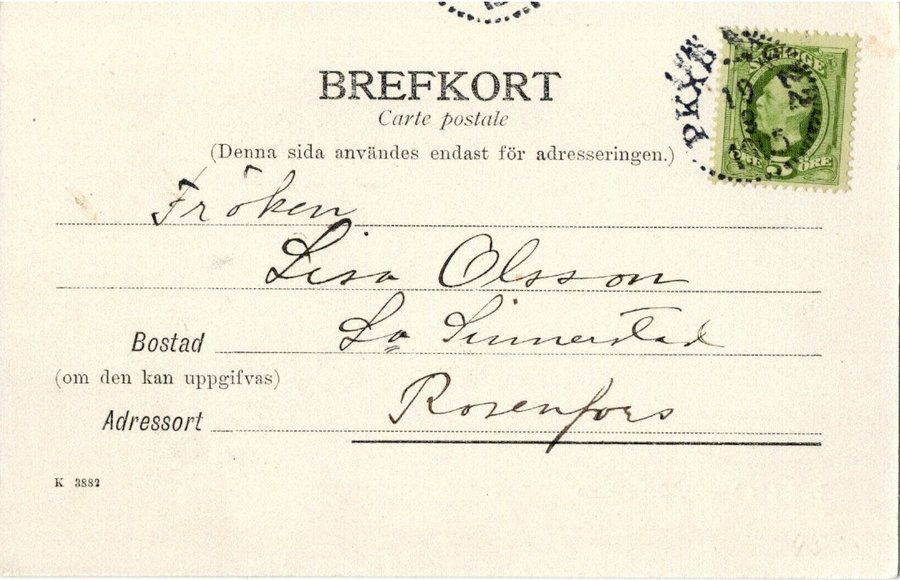 BREFKORT
Carte postale
(Denna sida användes endast för adresseringen.)
PKXB
SVERIGE
5 ÖRE
Fröken
Lisa Olsson
Bostad
(om den kan uppgifvas)
Adressort Rosenfors
K 3882